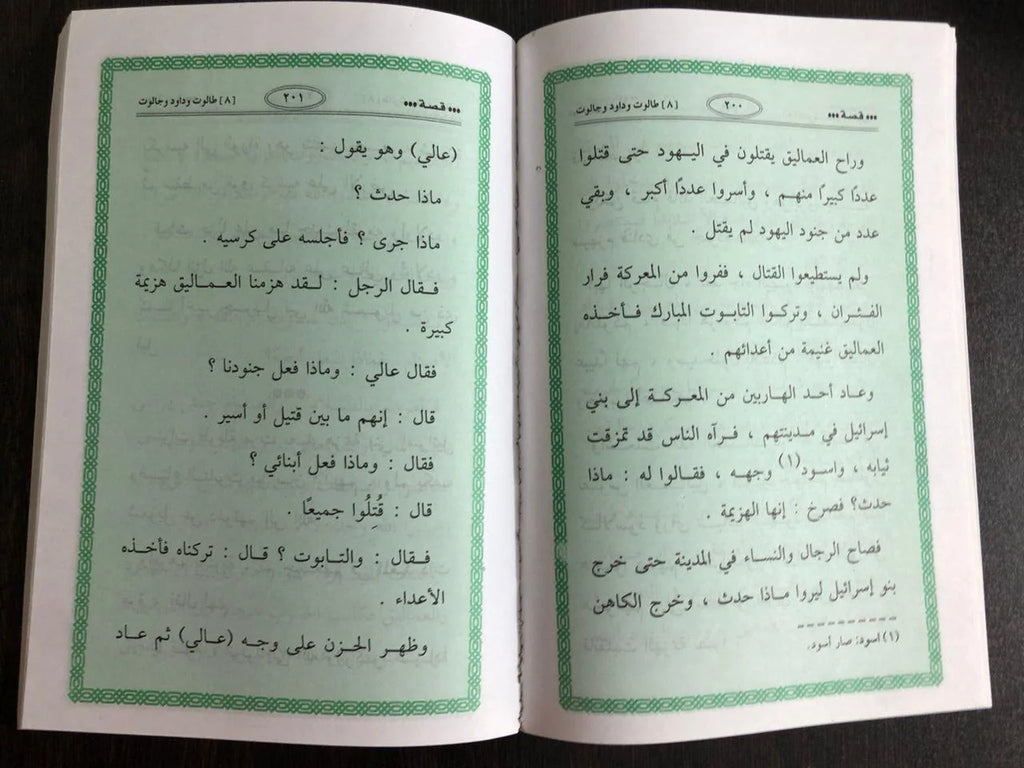 ••• قصة ••• ٢٠٠ [٨] طالوت وداود وجالوت
وراح العماليق يقتلون في اليهود حتى قتلوا
عددًا كبيرًا منهم ، وأسروا عددًا أكبر ، وبقي
عدد من جنود اليهود لم يقتل .
ولم يستطيعوا القتال ، ففروا من المعركة فرار
الفئران ، وتركوا التابوت المبارك فأخذه
العماليق غنيمة من أعدائهم .
وعاد أحد الهاربين من المعركة إلى بني
إسرائيل في مدينتهم ، فرآه الناس قد تمزقت
ثيابه ، واسود(١) وجهه ، فقالوا له : ماذا
حدث؟ فصرخ : إنها الهزيمة .
فصاح الرجال والنساء في المدينة حتى خرج
بنو إسرائيل ليروا ماذا حدث ، وخرج الكاهن
(١) اسود: صار أسود.
••• قصة ••• ٢٠١ [٨] طالوت وداود وجالوت
(عالي) وهو يقول :
ماذا حدث ؟
ماذا جرى ؟ فأجلسه على كرسيه .
فقال الرجل : لقد هزمنا العماليق هزيمة
كبيرة .
فقال عالي : وماذا فعل جنودنا ؟
قال : إنهم ما بين قتيل أو أسير .
فقال : وماذا فعل أبنائي ؟
قال : قُتِلُوا جميعًا .
فقال : والتابوت ؟ قال : تركناه فأخذه
الأعداء .
وظهر الحزن على وجه (عالي) ثم عاد